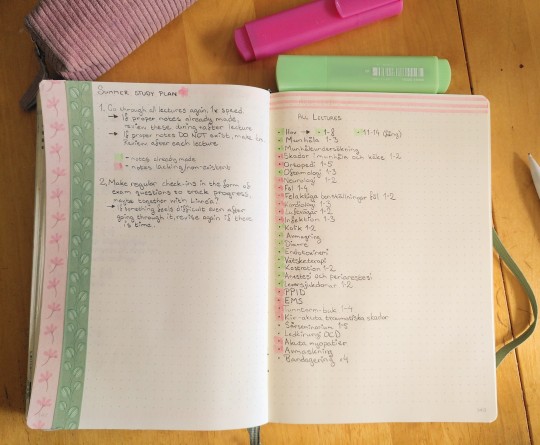 SUMMER STUDY PLAN
1. Go through all lectures again, 1x speed
→ If proper notes already made,
review these during/after lecture
→ If proper notes DO NOT exist, make them.
Review after each lecture.
= notes already made
= notes lacking/non-existent
2. Make regular check-ins in the form of
exam questions to track progress,
maybe together with
→ If something feels difficult even after
going through it, revise again if there
is time.
ALL LECTURES
• Hov → • 1-8 • 11-14 (fång)
• Munhåla 1-3
• Munhåleundersökning
• Skador i munhåla och käke 1-2
• Ortopedi 1-5
• Oftalmologi 1-3
• Neurologi 1-2
• Föl 1-4
• Felaktiga benställningar föl 1-2
• Kardiologi 1-3
• Luftvägar 1-2
• Infektion 1-3
• Kolik 1-2
• Avmagring
• Diarré
• Endotoxinemi
• Vätsketerapi
• Kastration 1-2
• Anestesi och
• Ledsjukdomar 1-2
• PPID
• EMS
• 1-4
• Kir-akuta traumatiska skador
• 1-5
• Ledkirurgi OCD
• Akuta myopatier
• Avmaskning
• Bandagering x4